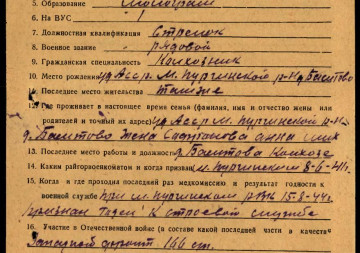 5. Образование
6. На ВУС
7. Должностная квалификация Стрелок
8. Военное звание рядовой
9. Гражданская специальность Колхозник
10. Место рождения уд Асср. М. пургинский р-н д. Баштово
11. Последнее место жительства также
12. Где проживает в настоящее время семья (фамилия, имя и отчество жены или
родителей и точный их адрес) уд Асср М. пургинской р-н
д. Баштово жена анна
13. Последнее место работы и должность д. Баштова Колхозе
14. Каким райгорвоенкоматом и когда призван м. пургинским 8-6-41г.
15. Когда и где проходил последний раз медкомиссию и результат годности к
военной службе при м. пургинском р. 15-8-44г.
признан годен к строевой службе
16. Участие в Отечественной войне (в составе какой последней части и качестве)
Западной фронт 166 ст.